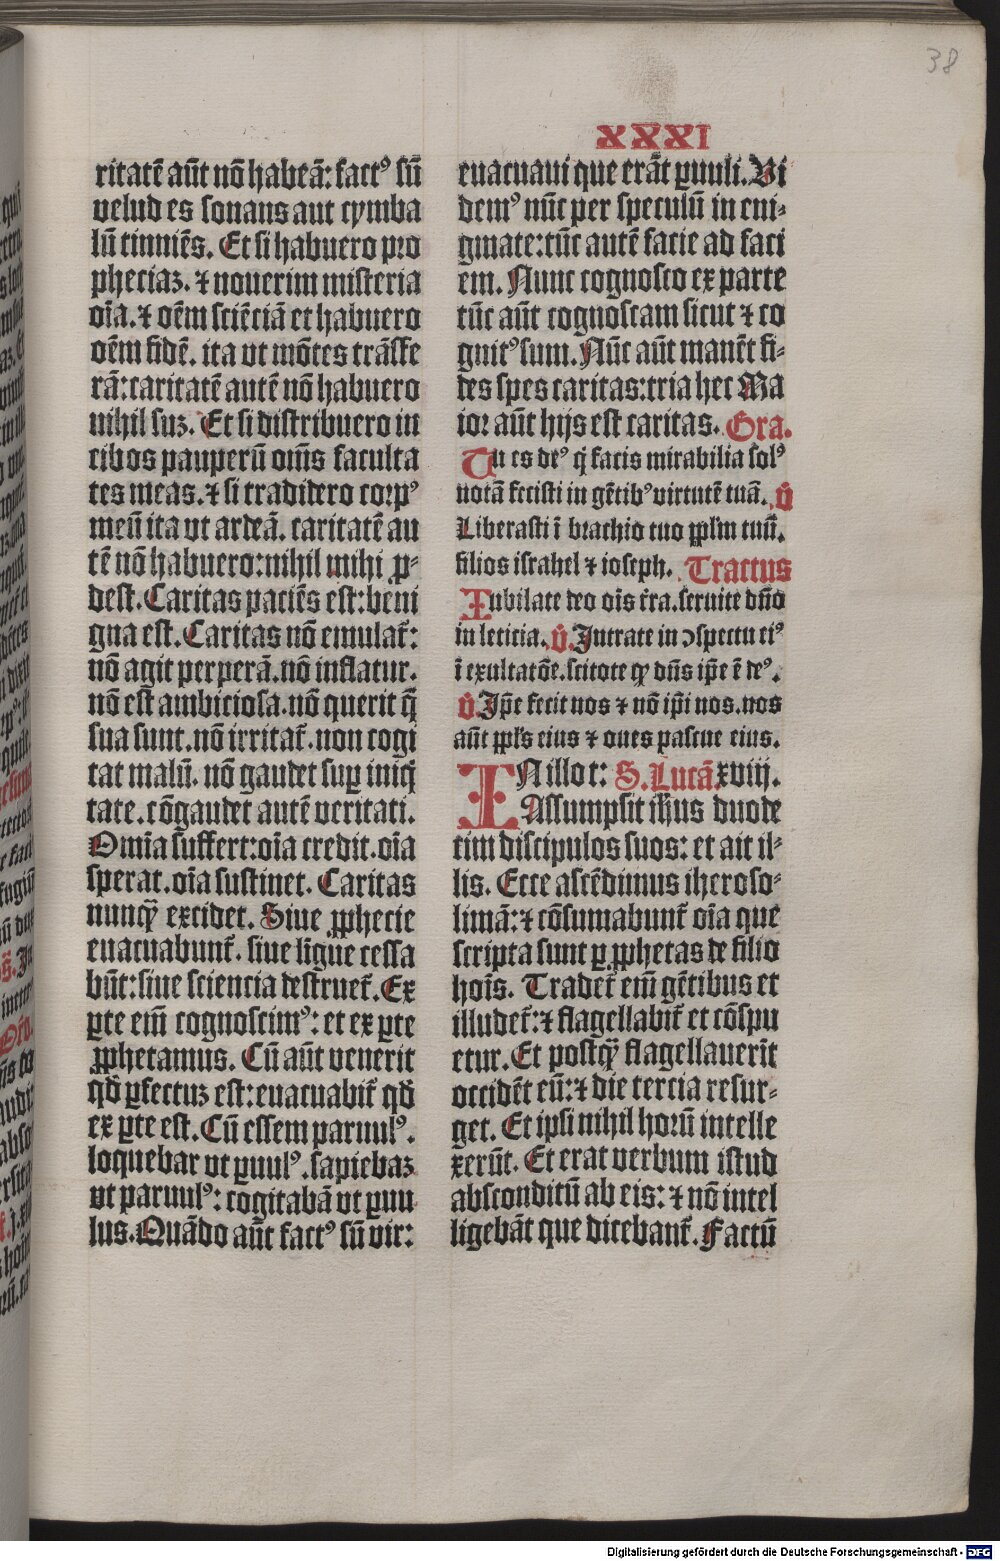 38
XXXI
ritatē aūt nō habeā: factꝰ sū
velud es sonans aut cymba
lū tinniēs. Et si habuero pro
pheciaꝫ. ⁊ nouerim misteria
oīa. ⁊ oēm sciēciā et habuero
oēm fidē. ita vt mōtes trāsfe
rā: caritatē autē nō habuero
nihil suꝫ. Et si distribuero in
cibos pauperū om̄s faculta
tes meas. ⁊ si tradidero corpꝰ
meū ita vt ardeā. caritatē au
tē nō habuero: nihil mihi ꝓ-
dest. Caritas paciēs est: beni
gna est. Caritas nō emulat̄:
nō agit perperā. nō inflatur.
nō est ambiciosa. nō querit q̄
sua sunt. nō irritat̄. non cogi
tat malū. nō gaudet suꝑ iniq̄
tate. cōgaudet autē veritati.
Omīa suffert: oīa credit. oīa
sperat. oīa sustinet. Caritas
nunqꝫ excidet. Siue ꝓphecie
euacuabunt̄. siue līgue cessa
būt: siue sciencia destruet̄. Ex
ꝑte em̄ cognoscimꝰ: et ex ꝑte
ꝓphetamus. Cū aūt venerit
qđ ꝑfectuꝫ est: euacuabit̄ qđ
ex ꝑte est. Cū essem paruulꝰ.
loquebar vt ꝑuulꝰ. sapiebaꝫ
vt paruulꝰ: cogitabā vt ꝑuu
lus. Quādo aūt factꝰ sū vir:
euacuaui que erāt ꝑuuli. Vi
demꝰ nūc per speculū in eni-
gmate: tūc autē facie ad faci
em. Nunc cognosco ex parte
tūc aūt cognoscam sicut ⁊ co
gnitꝰ sum. Nūc aūt manēt fi-
des spes caritas: tria hec Ma
ior aūt hijs est caritas. Gra.
Tu es deꝰ q̄ facis mirabilia solꝰ
notā fecisti in gētibꝰ virtutē tuā. ℣
Liberasti ī brachio tuo pplm̄ tuū.
filios israhel ⁊ ioseph. Tractus
Iubilate deo oīs t̄ra. seruite dn̄o
in leticia. ℣. Intrate in ↄspectu eiꝰ
ī exultatōe. scitote qꝫ dn̄s ip̄e ē deꝰ.
℣ Ip̄e fecit nos ⁊ nō ip̄i nos. nos
aūt ppl̄s eius ⁊ oues pascue eius.
IN illo t: S. Lucā. xviij.
Assumpsit ih̄us duode
cim discipulos suos: et ait il-
lis. Ecce ascēdimus iheroso-
limā: ⁊ cōsumabunt̄ oīa que
scripta sunt ꝑ ꝓphetas de filio
hoīs. Tradet̄ em̄ gētibus et
illudet̄: ⁊ flagellabit̄ et cōspu
etur. Et postqꝫ flagellauerīt
occidēt eū: ⁊ die tercia resur-
get. Et ipsi nihil horū intelle
xerūt. Et erat verbum istud
absconditū ab eis: ⁊ nō intel
ligebāt que dicebant̄. Factū
Digitalisierung gefördert durch die Deutsche Forschungsgemeinschaft - DFG